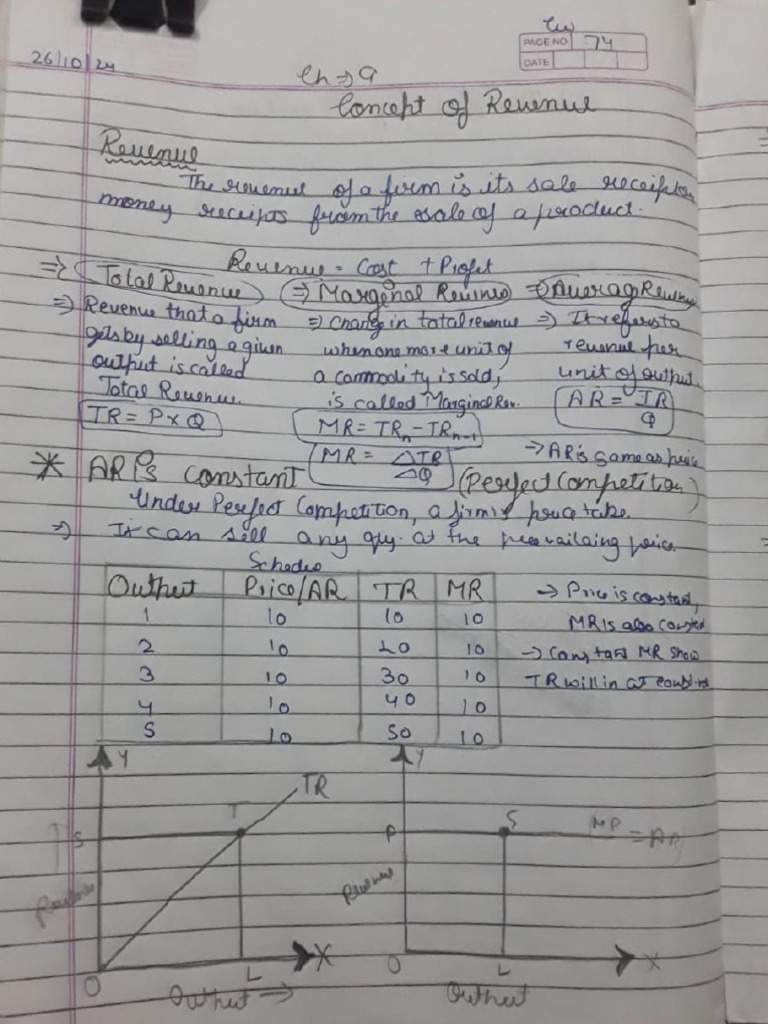 Cw
PAGE NO 74
DATE
26/10/24
Ch => 9
Concept of Revenue
Revenue
The revenue of a firm is its sale receipts or
money receipts from the sale of a product.
Revenue = Cost + Profit
=> Total Revenue => Marginal Revenue => Average Revenue
=> Revenue that a firm
gets by selling a given
output is called
Total Revenue.
TR = P x Q
=> Change in total revenue
when one more unit of
a commodity is sold,
is called Marginal Rev.
MR = TRn - TRn-1
MR = ΔTR/ΔQ
=> It refers to
revenue per
unit of output.
AR = TR/Q
-> AR is same as price
* AR is constant (Perfect Competition)
Under Perfect Competition, a firm is price take.
=> It can sell any qty. at the prevailaing price.
Output Price/AR TR MR
1 10 10 10
2 10 20 10
3 10 30 10
4 10 40 10
5 10 50 10
-> Price is constant,
MR is also
-> Constant MR show
TR will in at
Y
TR
T
S
Revenue
O
L
X
Output →
Y
P
S
MR = AR
Revenue
O
L
X
Output